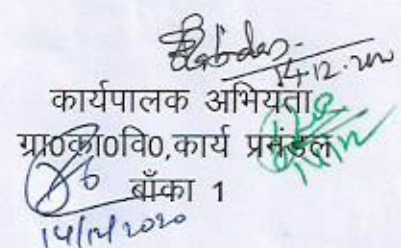 14.12.20
कार्यपालक अभियंता
ग्रा0का0वि0,कार्य प्रमंडल
बाँका 1
14/12/2020